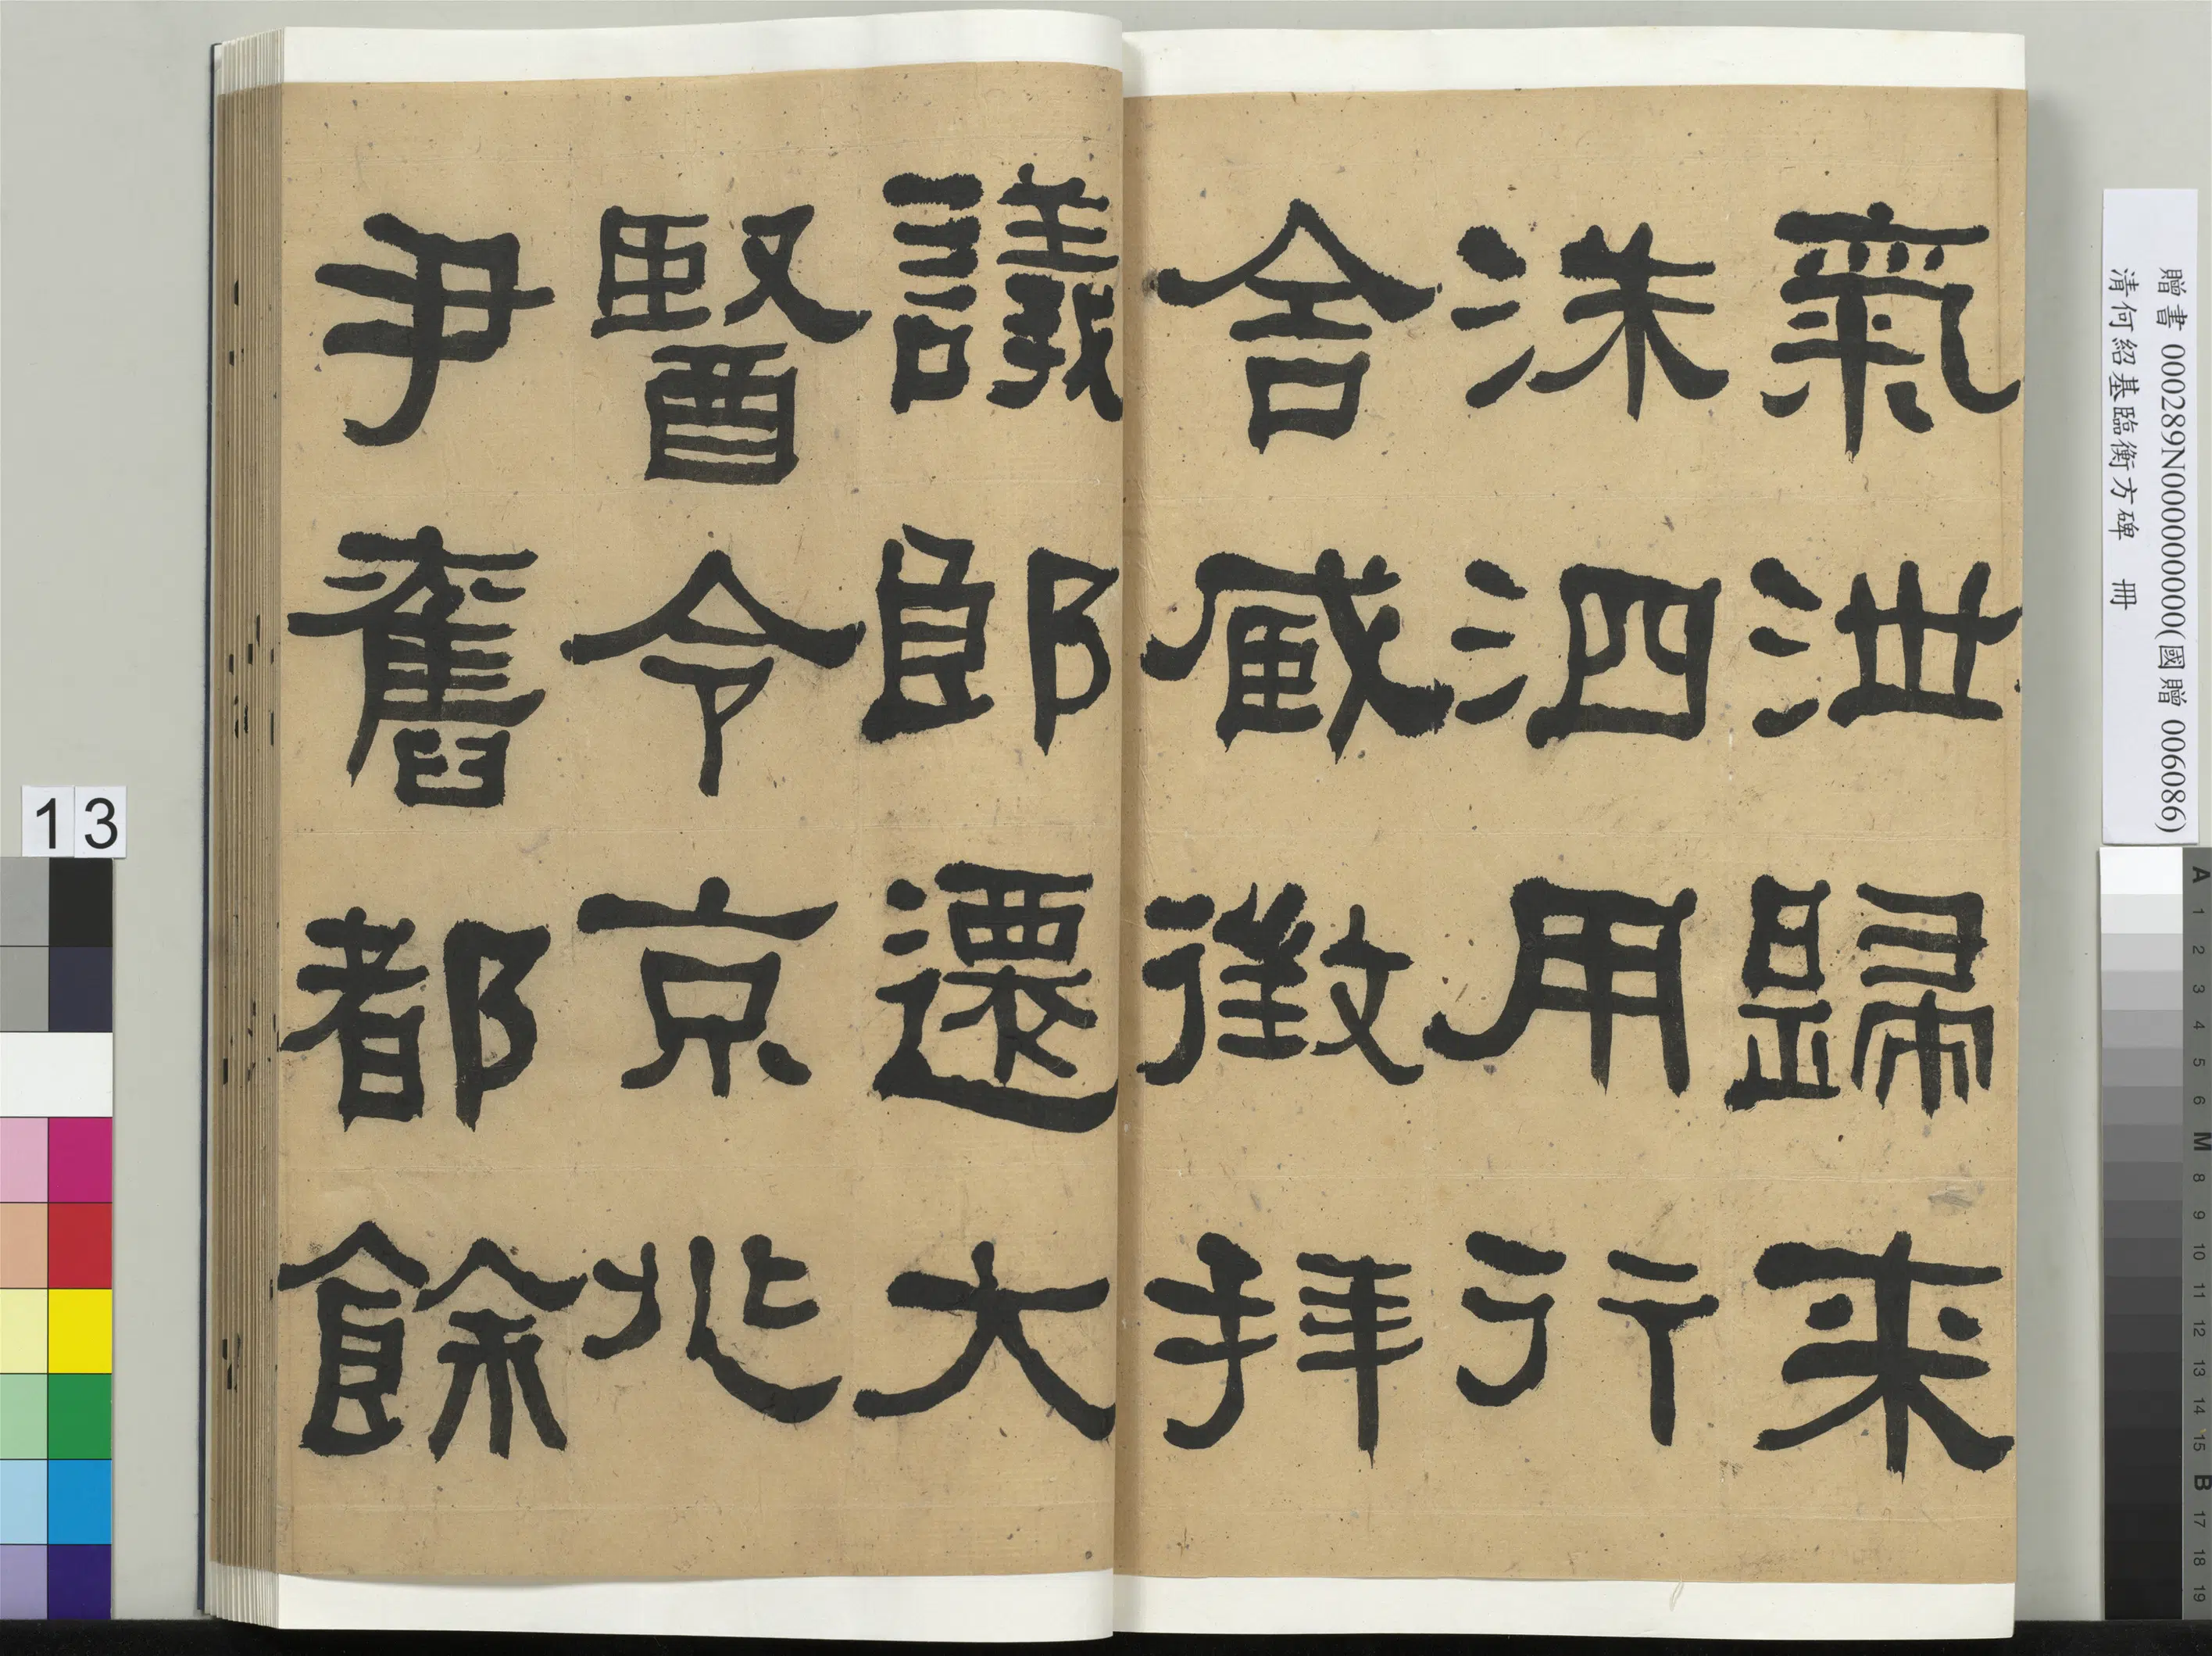 氣泄歸来
洙泗用行
舍臧徵拜
議郎遷大
醫令京兆
尹舊都餘
贈書 000289N000000000(國贈 006086)
清何紹基臨衡方碑 冊
13
A 1 2 3 4 5 6 M 8 9 10 11 12 13 14 15 B 17 18 19